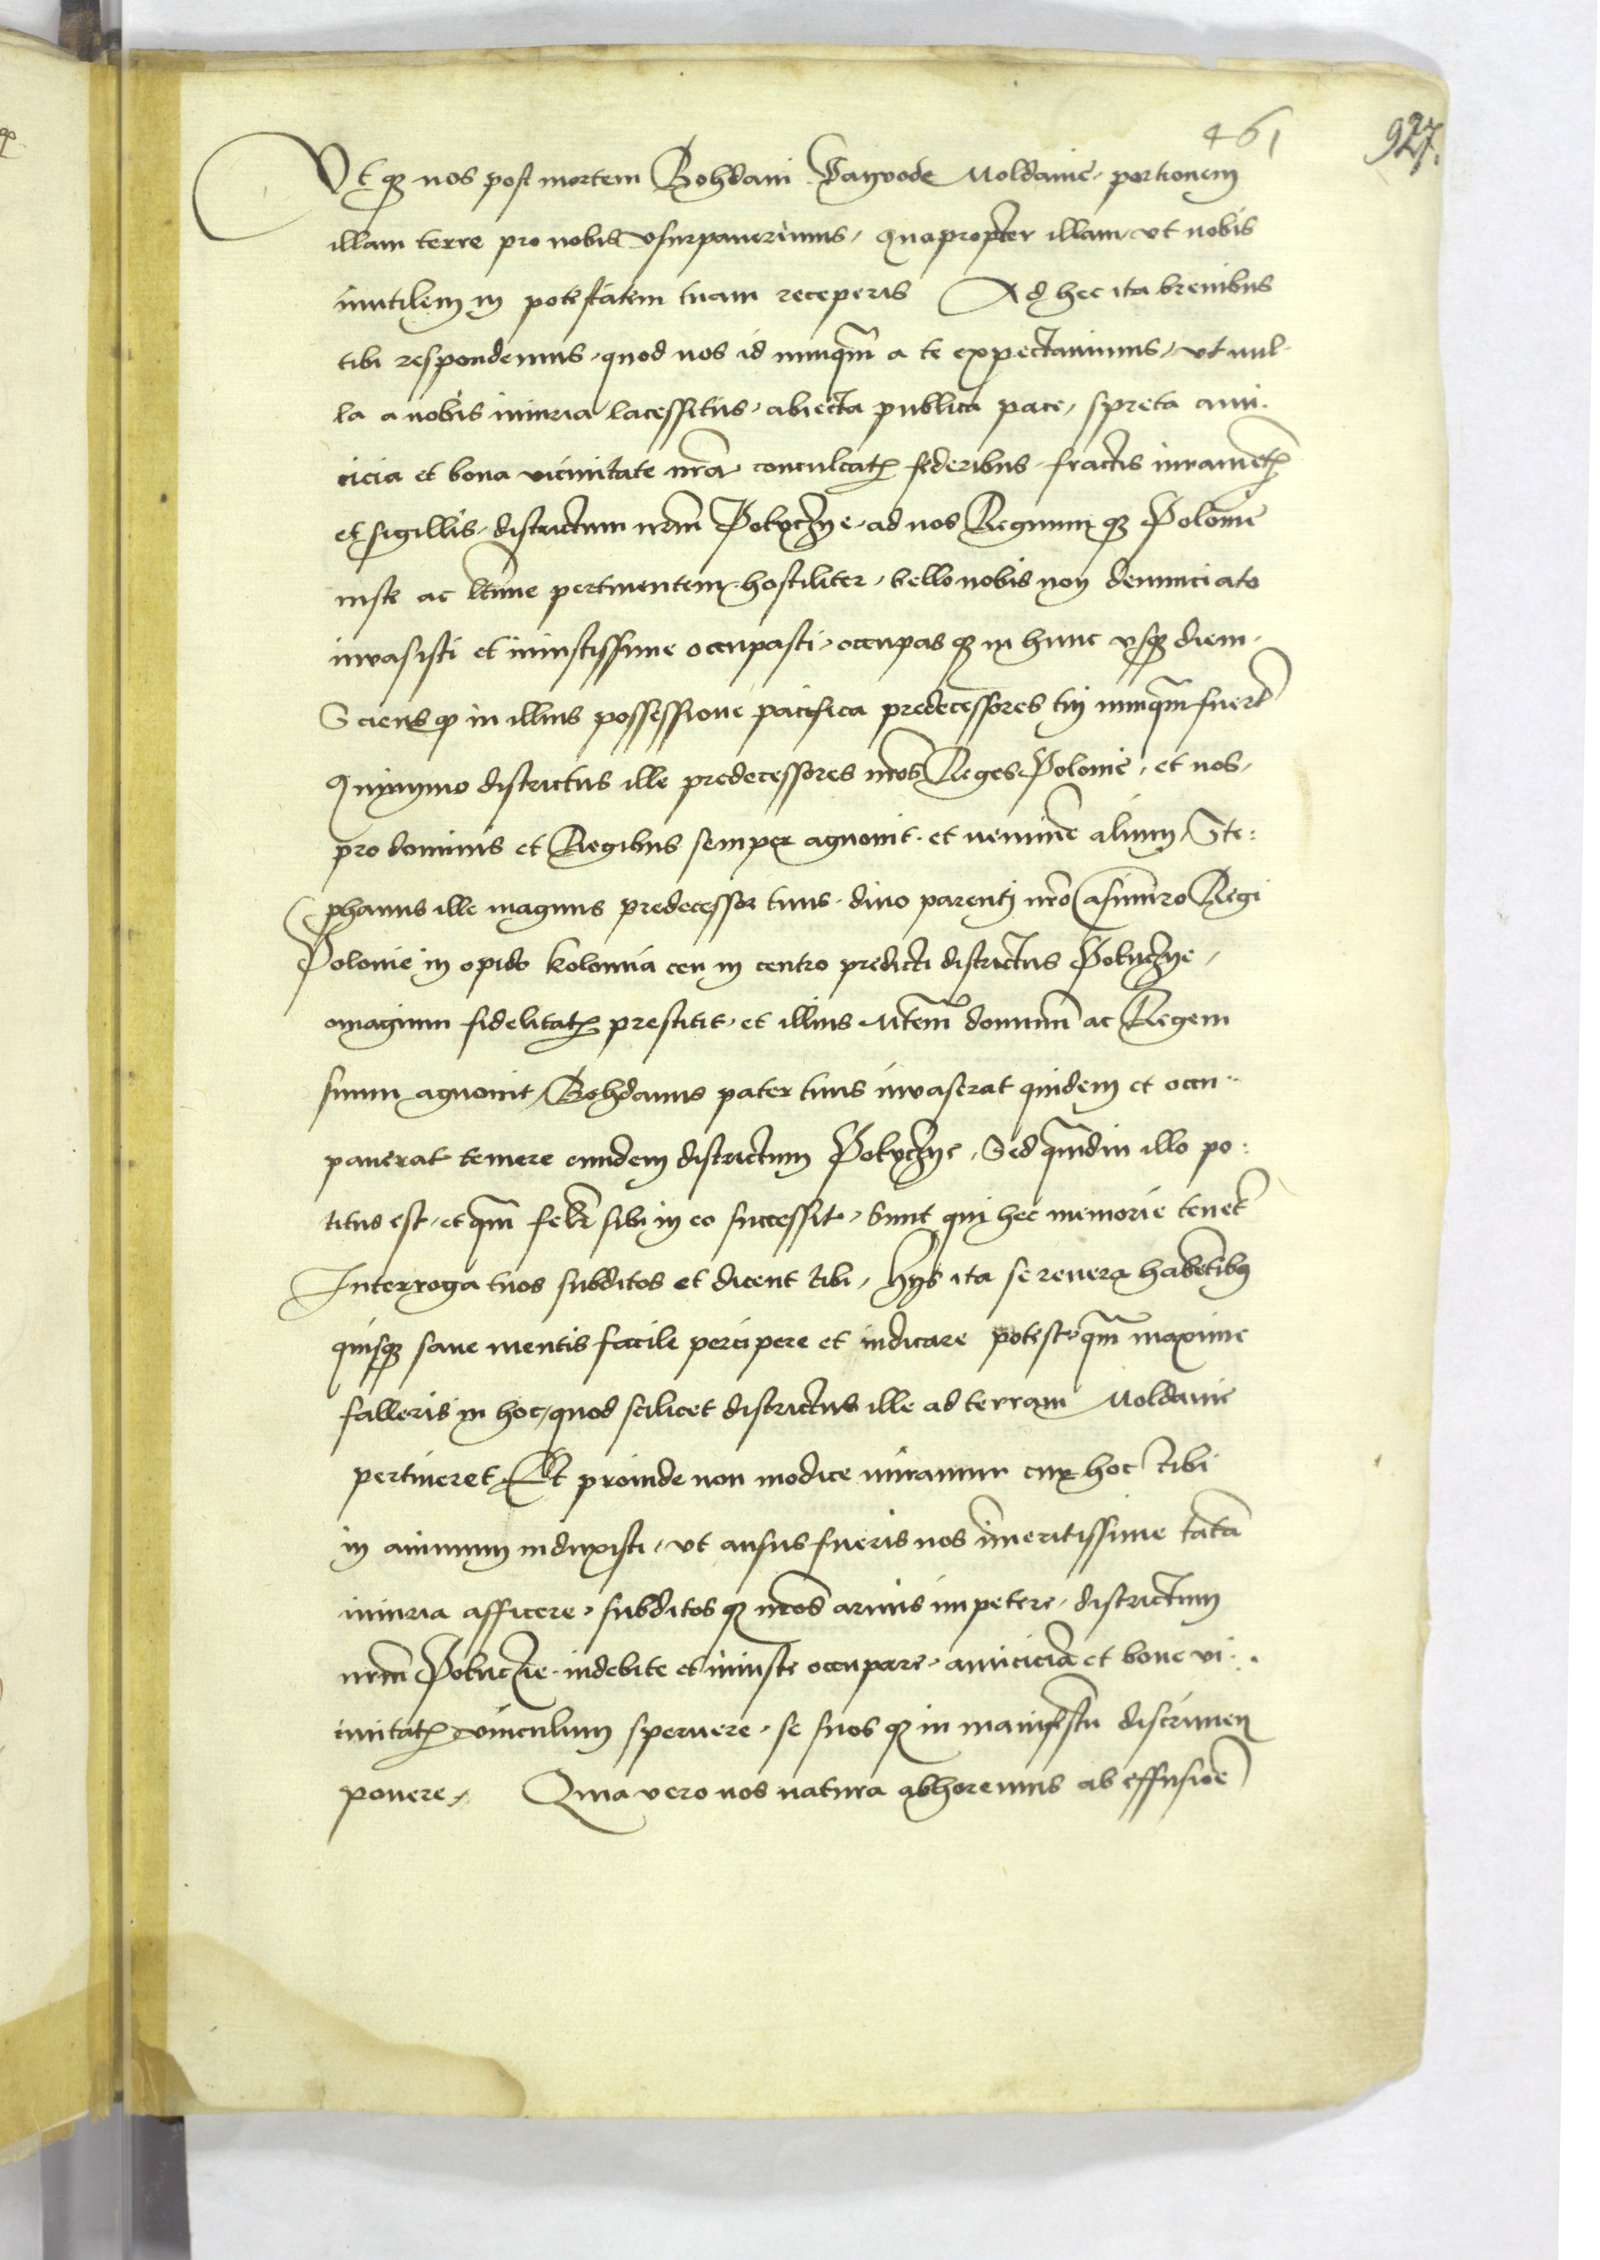 461
927.
Vt qz nos post mortem Bohdani Vayvode Moldauie, portionem
illam terre pro nobis vsurpauerimus, quapropter illam vt nobis
inutilem in potestatem tuam receperis Ad hec ita breuibus
tibi respondemus, quod nos id nunqm̃ a te expectauimus, vt nul-
la a nobis iniuria lacessitus, abiecta publica pace, spreta ami-
cicia et bona vicinitate nr̃a, conculcatꝭ federibus, fractis iuramẽtꝭ
et sigillis, districtum nrm̃ Pokuczye, ad nos Regnum qz Polonie
iuste ac ltĩme pertinentem, hostiliter, bello nobis non denunciato
inuasisti et iniustissime occupasti, occupas qz in hunc vsqz diem,
Sciens qz in illius possessione pacifica predecessores tui nunqm̃ fuerũt
Quinymo districtus ille predecessores nr̃os Reges Polonie, et nos,
pro dominis et Regibus semper agnouit, et neminẽ alium, Ste:
phanus ille magnus predecessor tuus, diuo parenti nr̃o Casimiro Regi
Polonie in opido Kolomia ceu in centro predicti districtus Pokuczye,
omagium fidelitatꝭ prestitit, et illius Mtem̃ dominũ ac Regem
suum agnouit, Bohdanus pater tuus inuaserat quidem et occu-
pauerat temere eundem districtum Pokuczye, Sed qm̃diu illo po:
titus est, et qm̃ felr̃ sibi in eo successit, Sunt qui hec memorie tenẽt
Interroga tuos subditos et dicent tibi, Hys ita se reuera habentibꝯ
quisqz sane mentis facile percipere et iudicare potest, qm̃ maxime
falleris in hoc, quod scilicet districtus ille ad terram Moldauie
pertineret, Et proinde non modice miramur cur hoc tibi
in animum induxisti, vt ausus fueris nos ĩmeritissime tãta
iniuria afficere, subditos qz nr̃os armis impetere, districtum
nrm̃ Pokuczie, indebite et iniuste occupare, amicicie et bone vi-
cinitatꝭ vinculum spernere, se suos qz in manifestũ discrimen
ponere, Quia vero nos natura abhoremus ab effusiõe